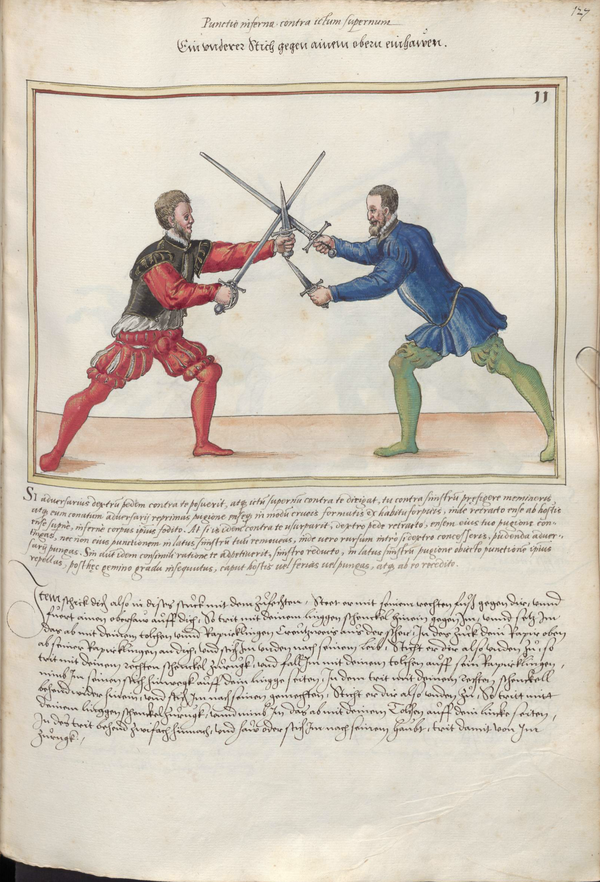 127
Punctio inferna contra ictum supernum
Ein vnderer Stich gegen ainem obern einhauwen.
11
SI adversarius dextrū pedem contra te posuerit, atq. ictū supernū contra te dirigat, tu contra sinistrū præfigere memineris
atq. eum conatum adversarij reprimas pugione ensēq. in modū crucis formatis ex habitu forpicis, inde retracto ense ab hostis
ense supnè, infernè corpus ipsius fodito. At si is idem contra te usurparit, dextro pede retracto, ensem eius tuo pugione con-
tingas, nec non eius punctionem in latus sinistrū tuū removeas, inde vero rursum intrò si dextro concesseris, pudenda aduer-
sarij pungas. Sin aūt idem consimili ratione te adpetiverit, sinistro reducto, in latus sinistrū pugione obiecto punctionē ipsius
repellas, post hęc gemino gradu insequutus, caput hostis vel ferias vel pungas, atq. ab eo recedito.
Item schick dich also in disers stuck mit dem zufechten, Steet er mit seinem rechten fuß gegen dir, vnnd
fuert ainen oberhaw auff dich, So trit mit deinem linggen schenckel hinein gegen Im, vnnd setz Im
dar ab mit deinem tolchen vnnd Rapierklingen Creutzweis aus der scher, In der zuck dein Rapir oben
ab seiner Rapirklingen an dich, vnd stich Im vnden nach seinem leib, Sticht er dir also vnden zu so
trit mit deinem rechten schenckel zurugk, vnd fall Im mit deinem tolchen auff sein Rapirklingen,
nimb Im seinen stich hinwegk auff dein lingge seiten, In dem trit mit deinem rechten schenckell
behend wider hinein, vnd stich Im nach seinen gemechten, Sticht er dir also vnden zu, So trit mitt
deinem linggen schenckel zurugk, vnnd nimb Im das ab mit deinem Tolchen auff dein lincke seiten,
In des trit behend zwifach hinnach, vnd haw oder stich Im nach seinem haubt, trit damit von Im
zurugk,